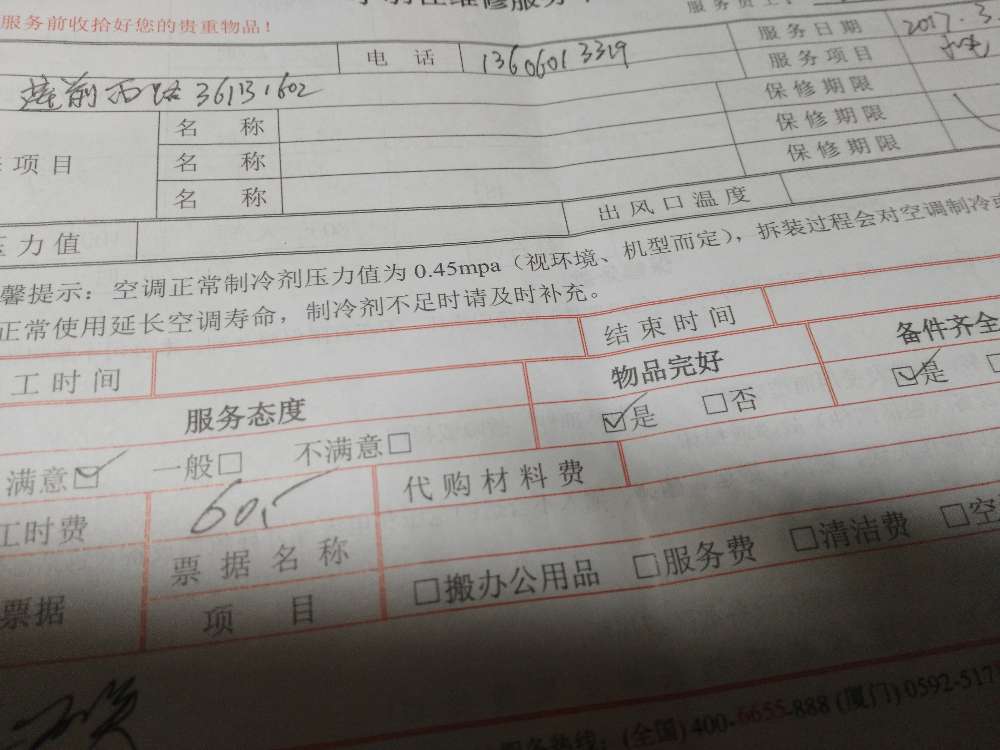 维修服务
服务前收拾好您的贵重物品！
服务员工
电 话 13606013319 服务日期 2017.3.
前西路361131602 服务项目
保修期限
名 称 保修期限
项目 名 称 保修期限
名 称
压力值 出风口温度
馨提示：空调正常制冷剂压力值为 0.45mpa（视环境、机型而定），拆装过程会对空调制冷
正常使用延长空调寿命，制冷剂不足时请及时补充。
工时间 结束时间
服务态度 物品完好 备件齐全
满意☑ 一般□ 不满意□ ☑是 □否 ☑是
工时费 60,- 代购材料费
票据 票据名称 □搬办公用品 □服务费 □清洁费 □空
项 目
服务热线：(全国) 400-6655-888 (厦门) 0592-517